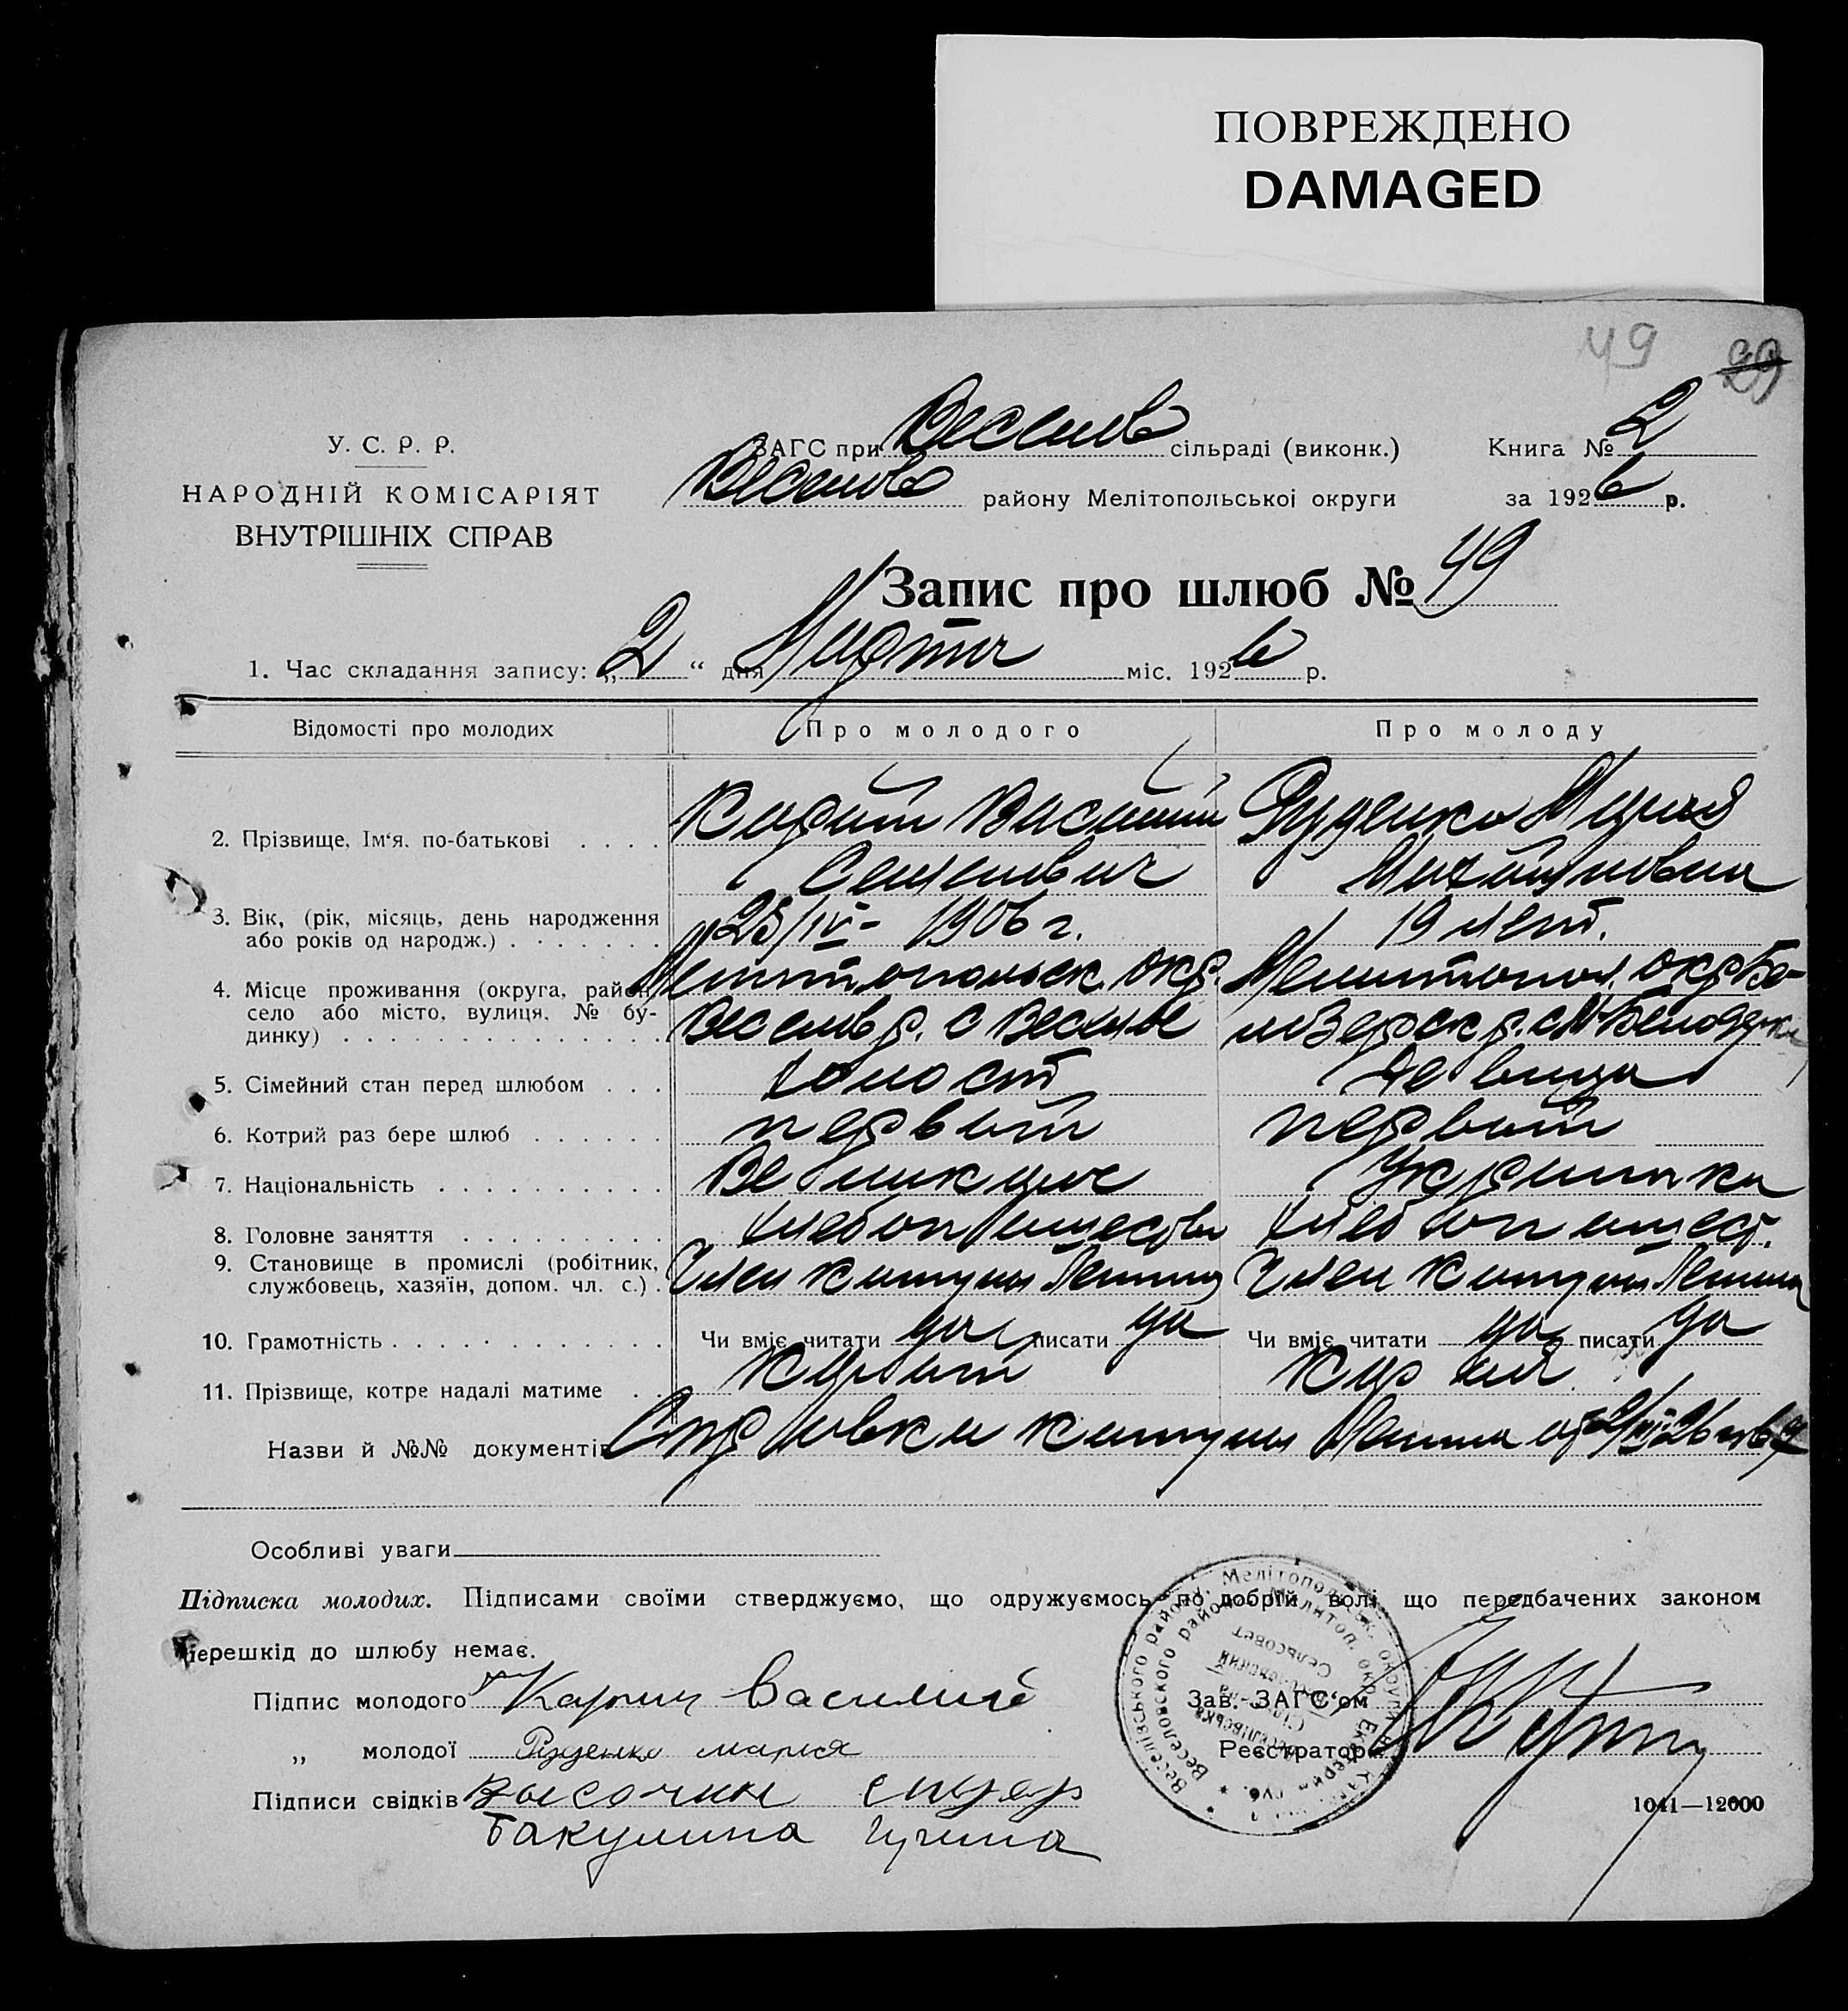 ПОВРЕЖДЕНО
DAMAGED
49 29
У. С. Р. Р.
НАРОДНІЙ КОМІСАРІЯТ
ВНУТРІШНІХ СПРАВ
ЗАГС при Веселов сільраді (виконк.) Книга № 2
Веселов району Мелітопольської округи за 1926 р.
Запис про шлюб № 49
1. Час складання запису: „2“ дня Марта міс. 1926 р.
Відомості про молодих Про молодого Про молоду
2. Прізвище, Ім‘я, по-батькові . . . . Василий Руденко Мария
Семенович Михайловна
3. Вік, (рік, місяць, день народження
або років од народж.) . . . . . . . 25/IV- 1906 г. 19 лет.
4. Місце проживання (округа, район,
село або місто, вулиця, № бу-
динку) . . . . . . . . . . . . . .
Мелитопольск. окр. Мелитопол. окр. Бе-
Веселов р. с Веселое лозерск р. с
5. Сімейний стан перед шлюбом . . . холост девица
6. Котрий раз бере шлюб . . . . . . первый первый
7. Національність . . . . . . . . . . Украинка
8. Головне заняття . . . . . . . . . хлебопашество хлебопашест.
9. Становище в промислі (робітник,
службовець, хазяїн, допом. чл. с.) . Член комуны Ленина Член комуны Ленина
10. Грамотність . . . . . . . . . . . . Чи вміє читати да писати да Чи вміє читати да писати да
11. Прізвище, котре надалі матиме . .
Назви й №№ документів Справка комуны Ленина
Особливі уваги
Підписка молодих. Підписами своїми стверджуємо, що одружуємось по добрій волі що передбачених законом
перешкід до шлюбу немає.
Підпис молодого Василий
„ молодої Руденко мария
Зав.-ЗАГС‘ом
Реєстратор
Підписи свідків Высочин
Бакулина
1041—12000